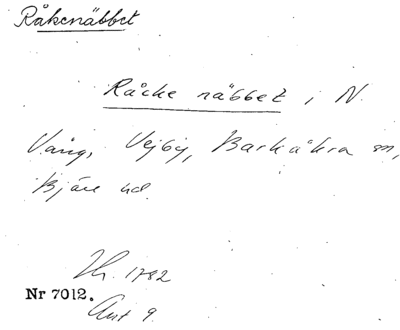 Råkenäbbet
Råcke näbbet i N.
Vång, Vejby, Barkåkra sn,
Bjäre hd.
Th. 1782
Nr 7012.
Akt 9.